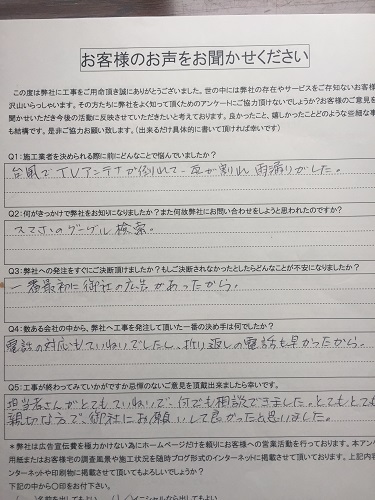 お客様のお声をお聞かせください
この度は弊社に工事をご用命頂き誠にありがとうございました。世の中には弊社の存在やサービスをご存知ないお客様
沢山いらっしゃいます。その方たちに弊社をよく知って頂くためのアンケートにご協力頂けないでしょうか？お客様のご意見を
聞かせいただき今後の活動に反映させていただきたいと考えております。良かったこと、嬉しかったことどのような些細な事
も結構です。是非ご協力お願い致します。（出来るだけ具体的に書いて頂ければ幸いです）
Q1:施工業者を決められる際に前にどんなことで悩んでいましたか？
台風でTVアンテナが倒れて、瓦が割れ雨漏りがした。
Q2:何がきっかけで弊社をお知りになりましたか？また何故弊社にお問い合わせをしようと思われたのですか？
スマホのグーグル検索。
Q3:弊社への発注をすぐにご決断頂けましたか？もしご決断されなかったとしたらどんなことが不安になりましたか？
一番最初に御社の広告があったから。
Q4:数ある会社の中から、弊社へ工事を発注して頂いた一番の決め手は何でしたか？
電話の対応もていねいでしたし、折り返しの電話も早かったから。
Q5:工事が終わってみていかがですか忌憚のないご意見を頂戴出来ましたら幸いです。
担当者さんがとてもていねいで、何でも相談できました。とてもとても
親切な方で、御社にお願いして良かったと思いました。
＊弊社は広告宣伝費を極力かけない為にホームページだけを頼りにお客様への営業活動を行っております。本アン
用紙またはお客様宅の調査風景や施工状況を随時ブログ形式のインターネットに掲載させて頂いております。上記内容
ンターネットや印刷物に掲載させて頂いてもよろしいでしょうか？
下記の中から〇印をお付下さい。